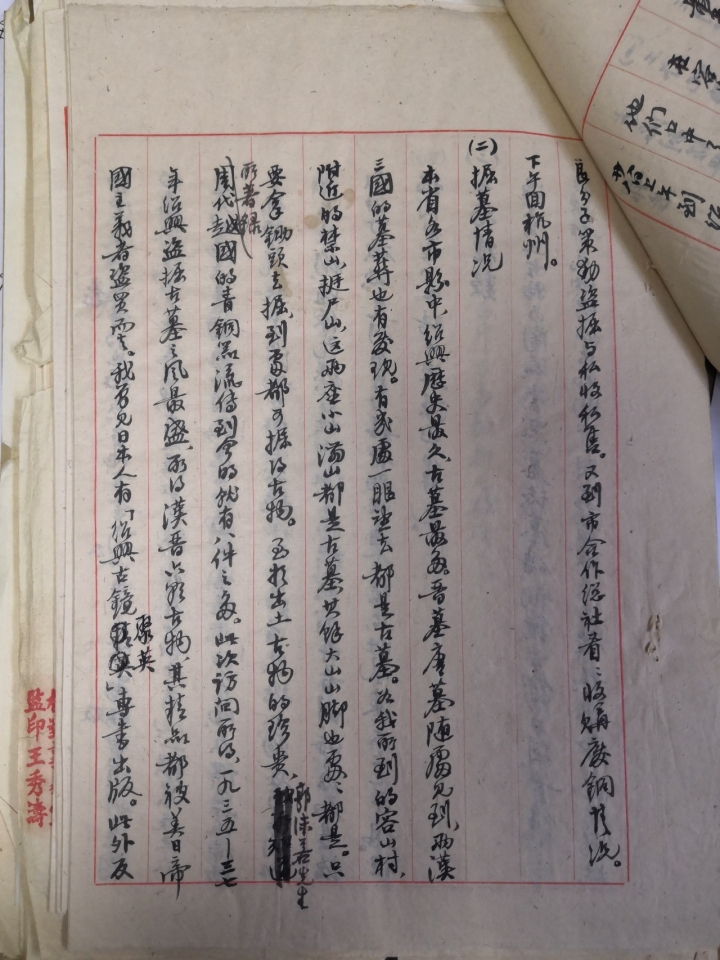 在客
他们口中了
上午到绍
良分子策动盗掘与私收私售。又到市合作总社看看收购废铜情况。
下午回杭州。
(二)掘墓情况
本省各市县中，绍興歷史最久，古墓最多。晋墓唐墓随處见到，两漢
三國的墓葬也有發现。有幾處一眼望去都是古墓。如我所到的容山村，
附近的禁山，挺尸山，这两座小山满山都是古墓，其餘大山山脚也處處都是。只
要拿锄頭去掘，到處都可掘得古物。至於出土古物的珍贵，郭沫若先生
所著録
周代越國的青铜器流傳到今的就有八件之多。此次访问所得，一九三五—三七
年绍興盗掘古墓之风最盛，所得漢晋六朝古物，其精品都被美日帝
國主義者盗买而去。我曾见日本人有「绍興古鏡聚英」專書出版。此外反
監印王秀濤